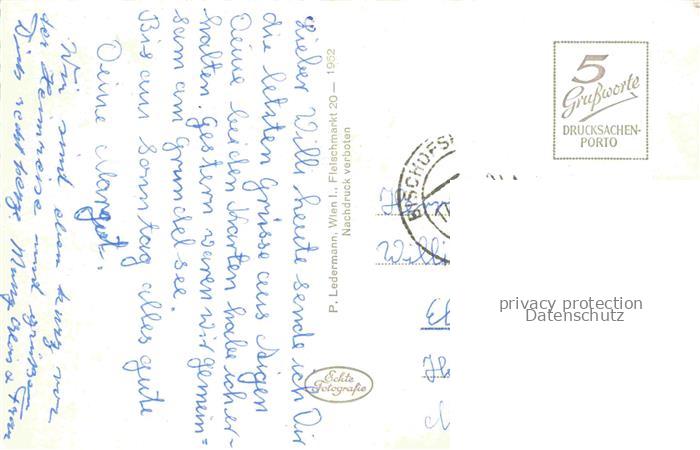 Lieber Willi heute sende ich Dir
die letzten Grüsse aus Aigen
Deine beiden Karten habe ich er-
halten. Gestern waren wir gemein=
sam am Grundelsee.
Bis am Sonntag alles gute
Deine Margot.
Wir sind eben kurz vor
der Heimreise und grüssen
Dich recht herzl.
P. Ledermann, Wien I., Fleischmarkt 20 — 1952
Nachdruck verboten
Echte
Fotografie
BISCHOFSH
5
Grußworte
DRUCKSACHEN-
PORTO
Herrn
Willi
privacy protection
Datenschutz